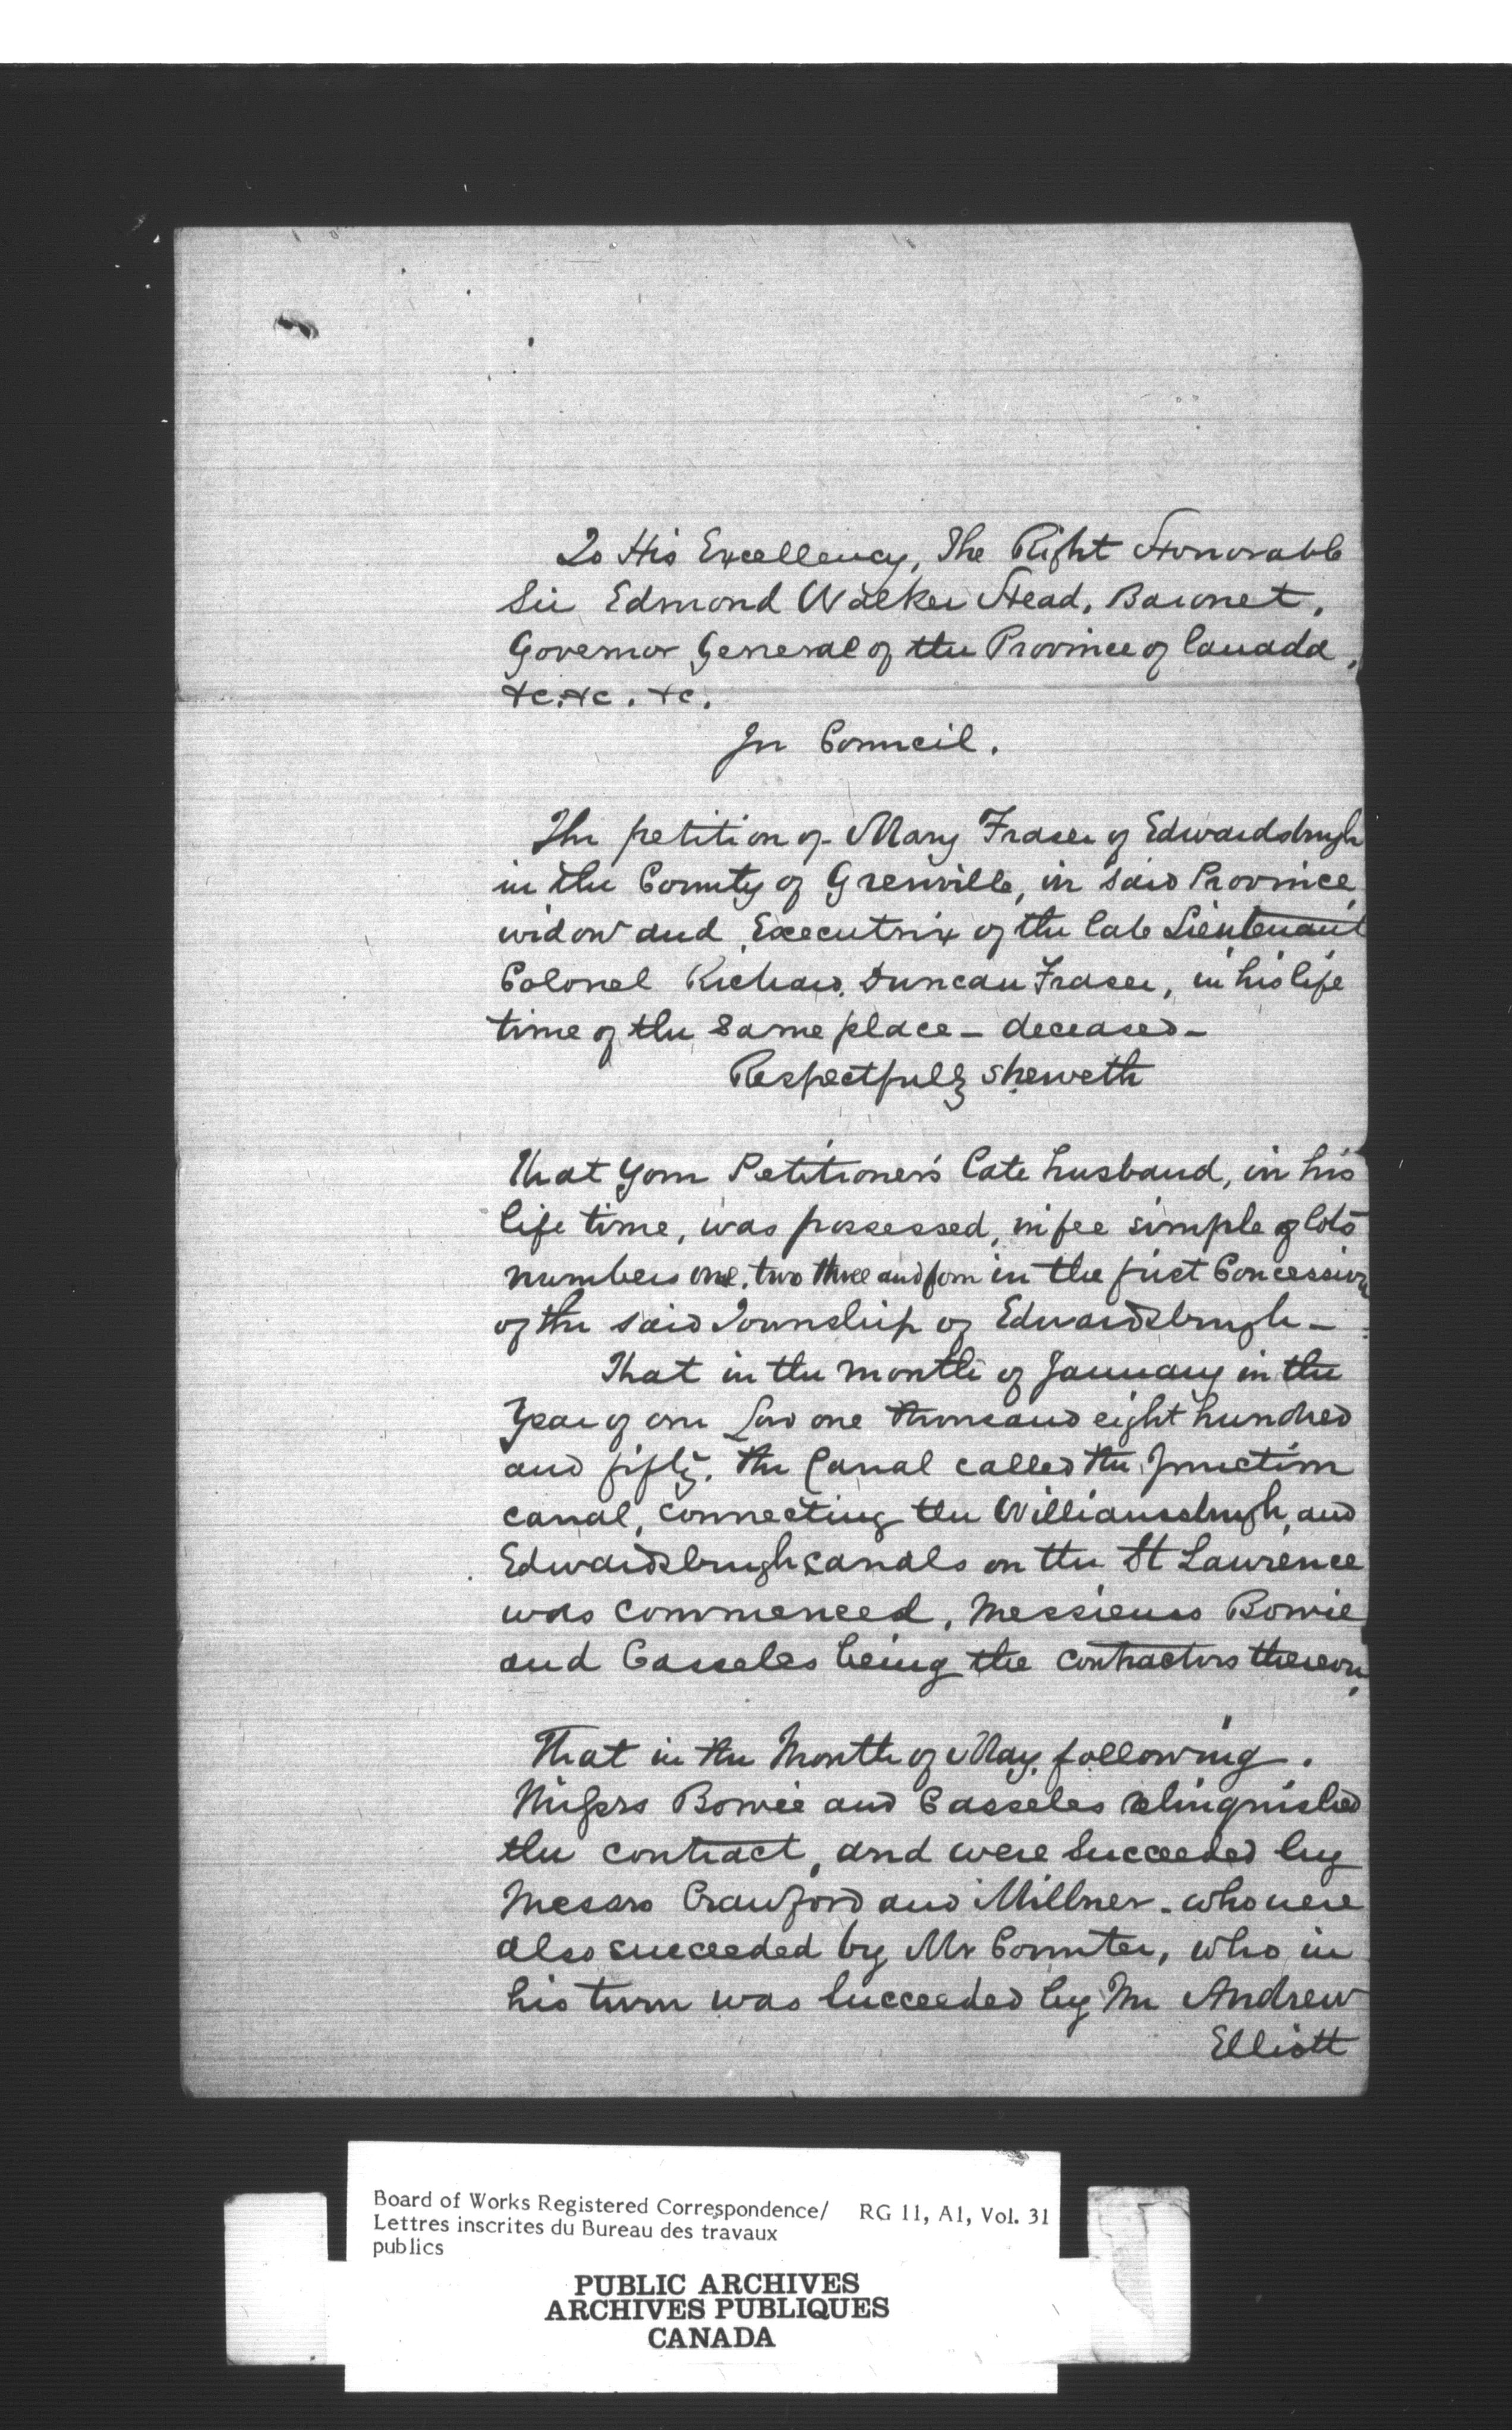 To His Excellency, The Right Honorable
Sir Edmond Walker Head, Baronet,
Governor General of the Province of Canada,
&c. &c. &c.
In Council.
The petition of Mary Fraser of Edwardsburgh
in the County of Grenville, in said Province
widow and Executrix of the late Lieutenant
Colonel Richard Duncan Fraser, in his life
time of the same place - deceased -
Respectfully sheweth
That your Petitioner's late husband, in his
life time, was possessed, in fee simple of lots
numbers one, two three and four in the first Concession
of the said Township of Edwardsburgh -
That in the month of January in the
Year of our Lord one thousand eight hundred
and fifty, the Canal called the Junction
canal, connecting the Williamsburgh and
Edwardsburgh canals on the St Lawrence
was commenced, Messieurs Bowie
and Casseles being the contractors thereon,
That in the Month of May, following,
Messrs Bowie and Casseles relinquished
the contract, and were succeeded by
Messrs Crawford and Millner - who were
also succeeded by Mr Counter, who in
his turn was succeeded by Mr Andrew
Elliott
Board of Works Registered Correspondence/ RG 11, A1, Vol. 31
Lettres inscrites du Bureau des travaux
publics
PUBLIC ARCHIVES
ARCHIVES PUBLIQUES
CANADA